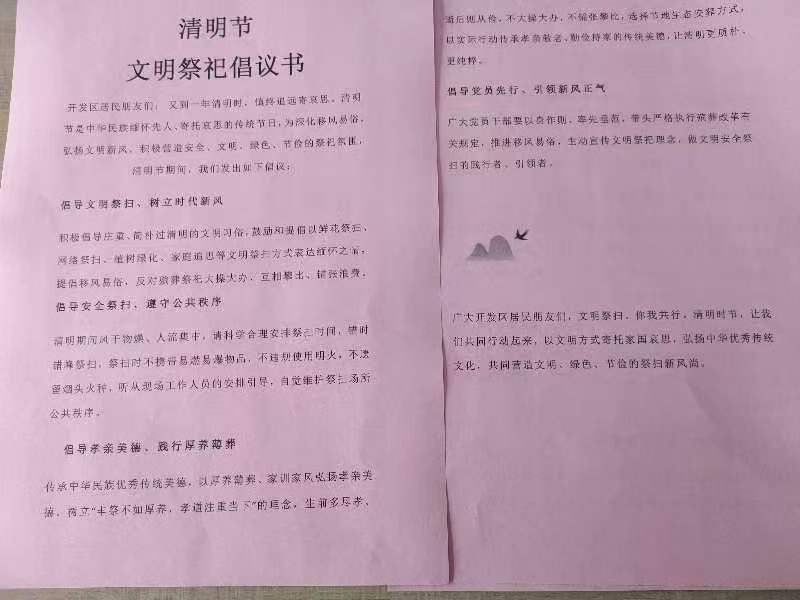 清明节
文明祭祀倡议书
开发区居民朋友们：又到一年清明时，慎终追远寄哀思。清明
节是中华民族缅怀先人、寄托哀思的传统节日，为深化移风易俗，
弘扬文明新风、积极营造安全、文明、绿色、节俭的祭祀氛围，
清明节期间，我们发出如下倡议：
倡导文明祭扫、树立时代新风
积极倡导庄重、简朴过清明的文明习俗，鼓励和提倡以鲜花祭扫、
网络祭扫、植树绿化、家庭追思等文明祭扫方式表达缅怀之情，
提倡移风易俗，反对殡葬祭祀大操大办、互相攀比、铺张浪费。
倡导安全祭扫、遵守公共秩序
清明期间风干物燥、人流集中，请科学合理安排祭扫时间，错时
错峰祭扫，祭扫时不携带易燃易爆物品，不违规使用明火，不遗
留烟头火种，听从现场工作人员的安排引导，自觉维护祭扫场所
公共秩序。
倡导孝亲美德、践行厚养薄葬
传承中华民族优秀传统美德，以厚养薄葬、家训家风弘扬孝亲美
德，树立“丰祭不如厚养，孝道注重当下”的理念，生前多尽孝、
逝后则从俭，不大操大办、不铺张攀比，选择节地生态安葬方式，
以实际行动传承孝亲敬老、勤俭持家的传统美德，让清明更质朴、
更纯粹。
倡导党员先行、引领新风正气
广大党员干部要以身作则、率先垂范，带头严格执行殡葬改革有
关规定，推进移风易俗，主动宣传文明祭祀理念，做文明安全祭
扫的践行者、引领者。
广大开发区居民朋友们，文明祭扫，你我共行。清明时节，让我
们共同行动起来，以文明方式寄托家国哀思，弘扬中华优秀传统
文化，共同营造文明、绿色、节俭的祭扫新风尚。